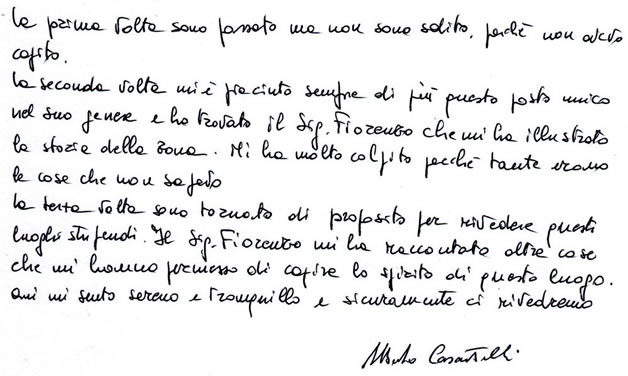 la prima volta sono passato ma non sono salito, perchè non avevo
capito.
La seconda volta mi è piaciuto sempre di più questo posto unico
nel suo genere e ho trovato il Sig. Fiorenzo che mi ha illustrato
la storia della zona. Mi ha molto colpito perchè tante erano
le cose che non sapevo
la terza volta sono tornato di proposito per rivedere questi
luoghi stupendi. Il Sig. Fiorenzo mi ha raccontato altre cose
che mi hanno permesso di capire lo spirito di questo luogo.
Qui mi sento sereno e tranquillo e sicuramente ci rivedremo